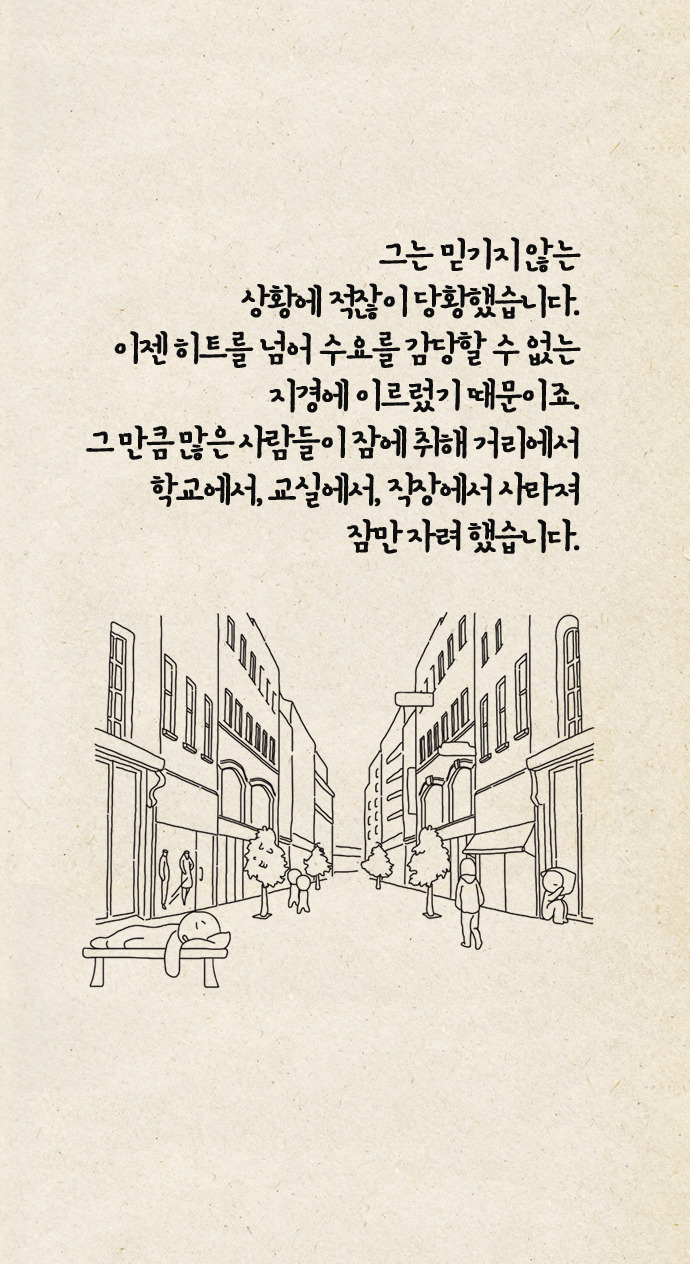 그는 믿기지 않는
상황에 적잖이 당황했습니다.
이젠 히트를 넘어 수요를 감당할 수 없는
지경에 이르렀기 때문이죠.
그 만큼 많은 사람들이 잠에 취해 거리에서
학교에서, 교실에서, 직장에서 사라져
잠만 자려 했습니다.